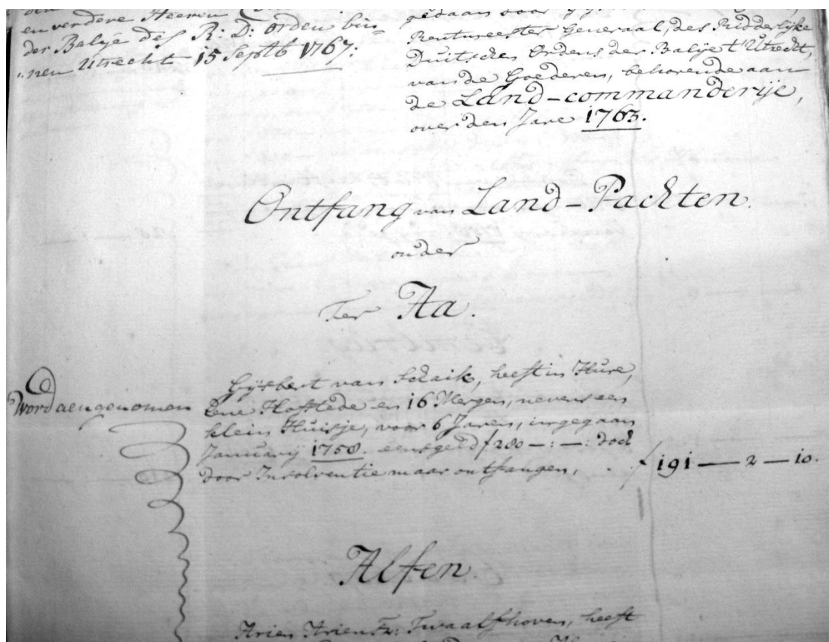 en verdere Heeren
der Balije des R: D: orden bin-
nen Utrecht 15 Septb 1767:
gedaan door
Rentmeester Generaal, des Ridderlijke
Duitschen Ordens der Balije t' Utrecht,
van de Goederen, behorende aan
de Land-commanderije,
over den Jare 1763.
Ontfang van Land-Pachten.
onder
Ter Aa.
Word aengenomen
Gijsbert van Schaik, heeft in Hure,
Eene Hofstede en 16 Mergen, nevens een
klein Huisje, voor 6 Jaren, ingegaan
January 1758. eens geld f 280 —:—: doch
door Insolventie maar ontfangen, . f 191 — 2 — 10.
Alfen.
Arien Arien Fz: Twaalfhoven, heeft